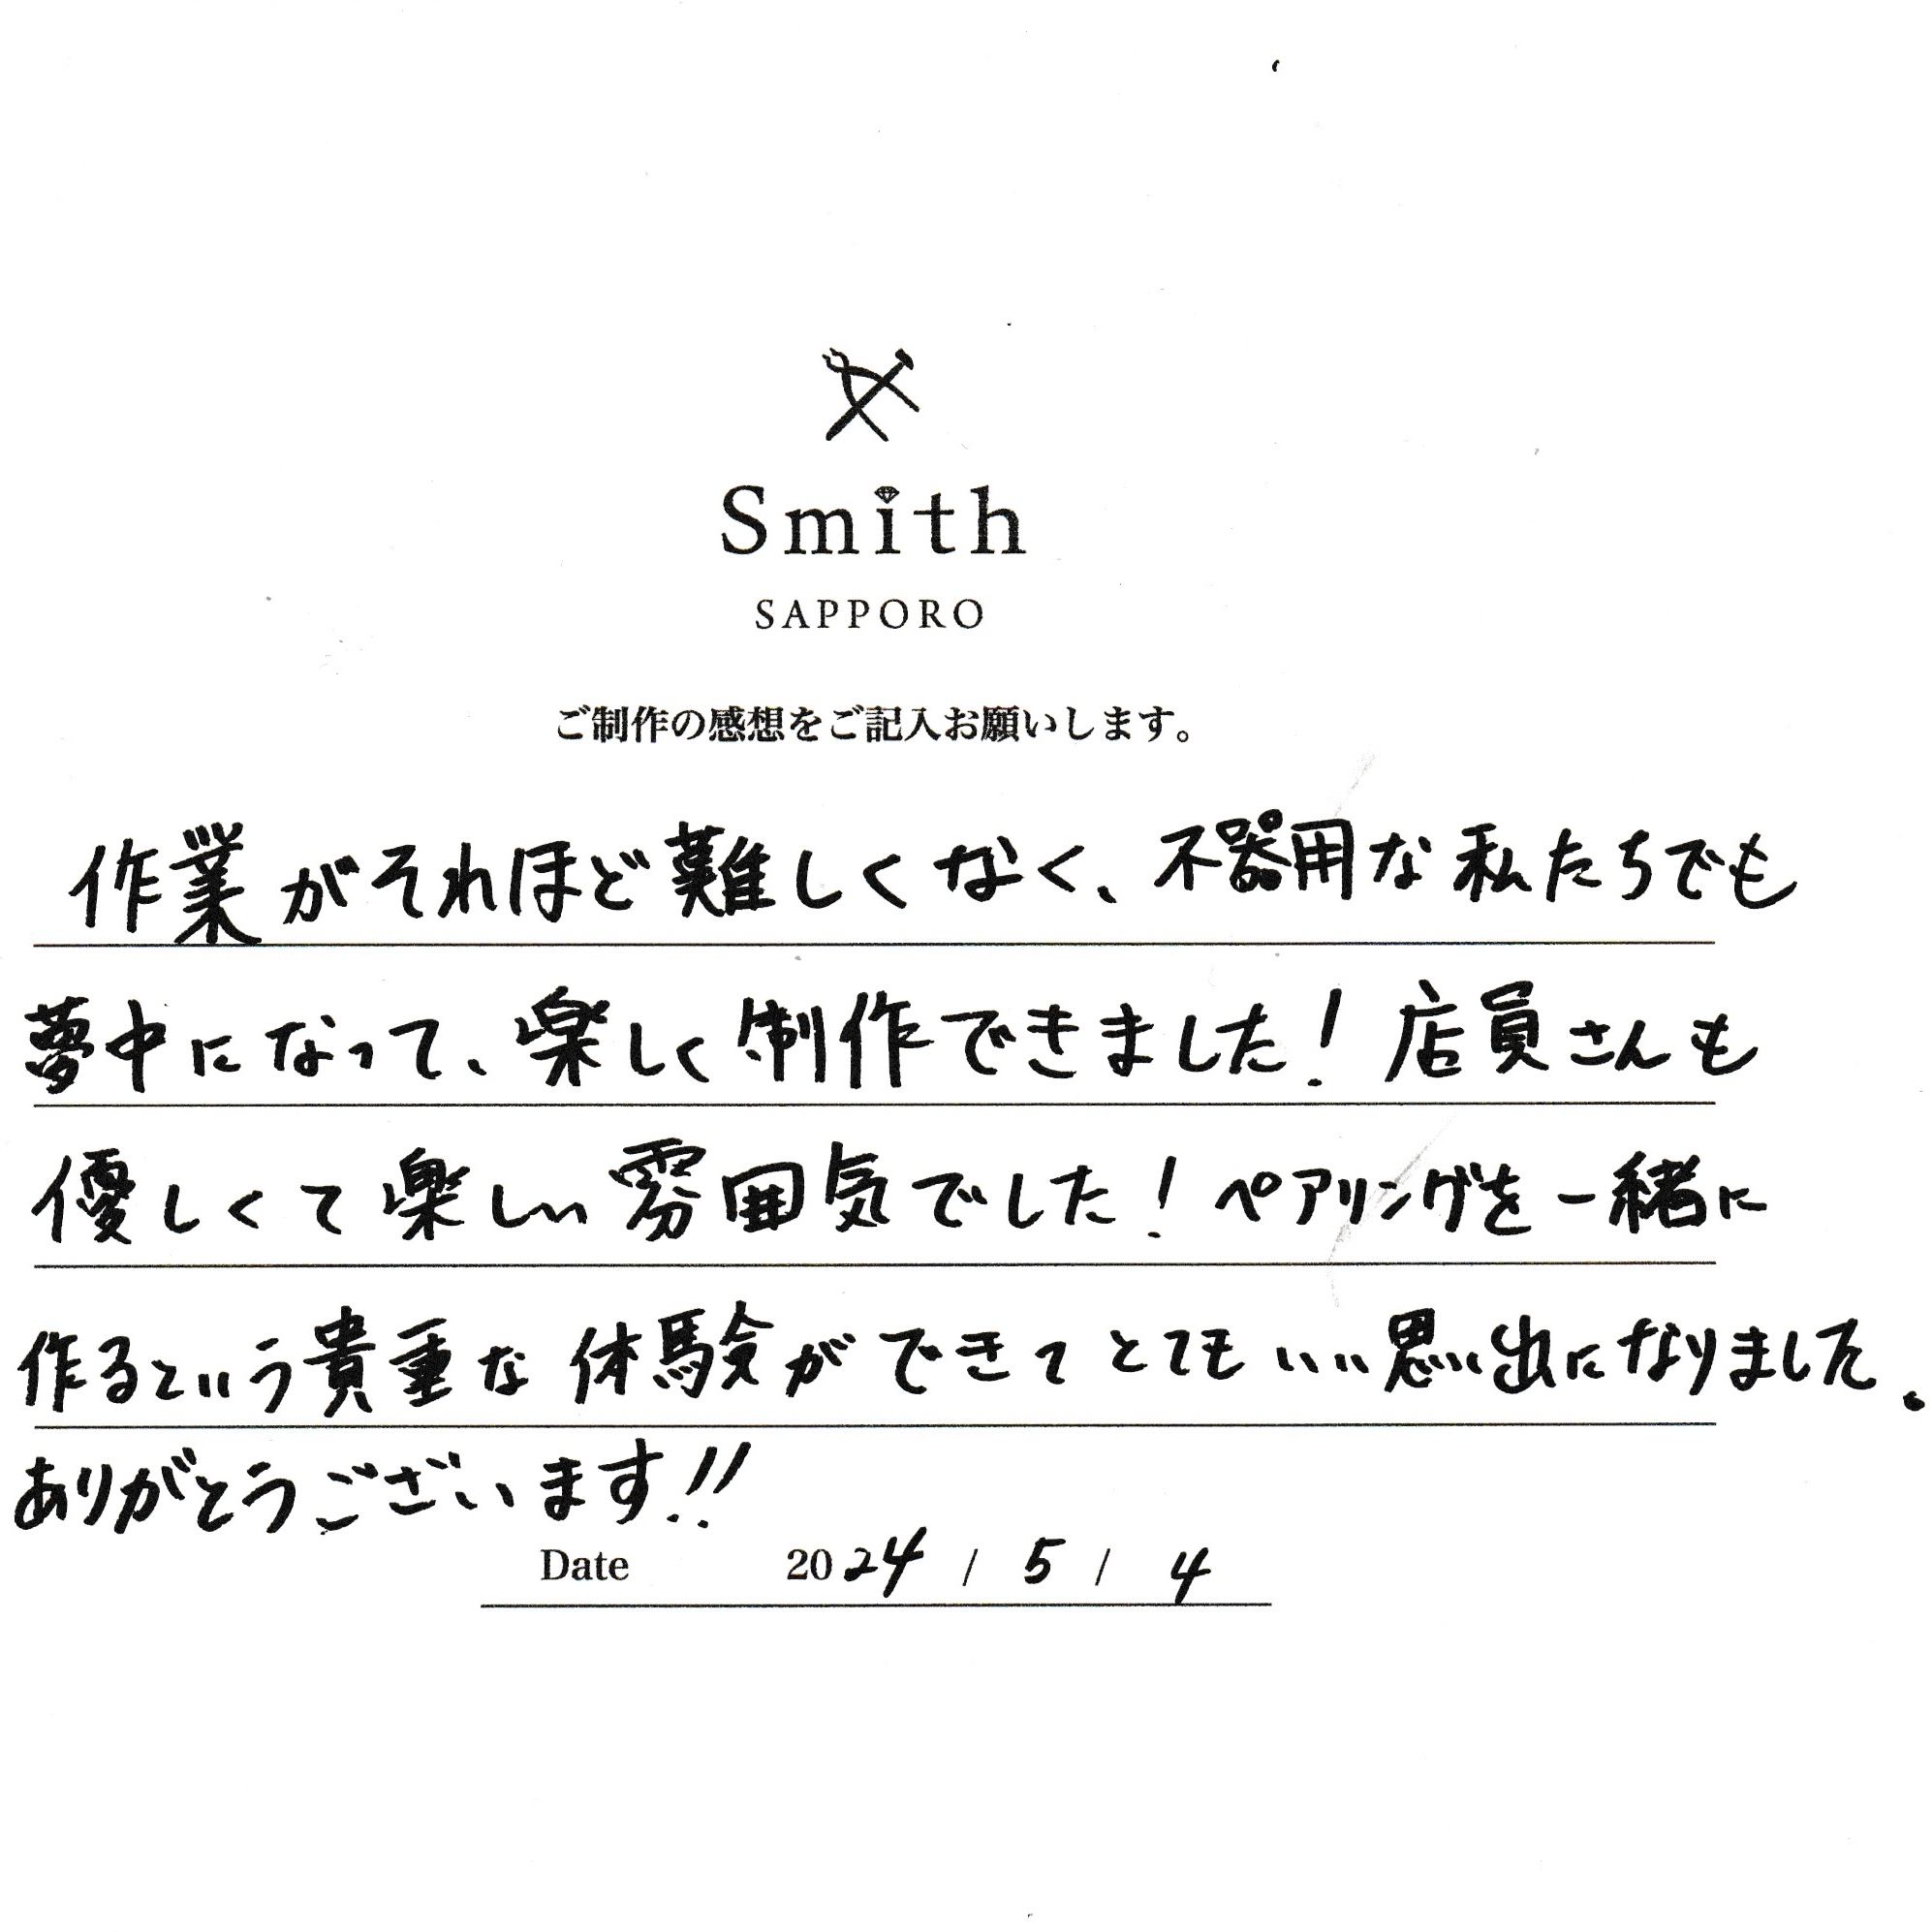 Smith
SAPPORO
ご制作の感想をご記入お願いします。
作業がそれほど難しくなく、不器用な私たちでも
夢中になって、楽しく制作できました！店員さんも
優しくて楽しい雰囲気でした！ペアリングを一緒に
作るという貴重な体験ができてとてもいい思い出になりました。
ありがとうございます!!
Date 2024 / 5 / 4